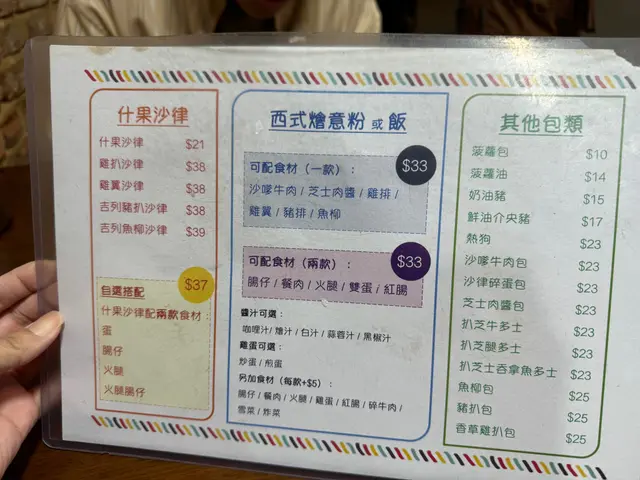 什果沙律
什果沙律 $21
雞扒沙律 $38
雞翼沙律 $38
吉列豬扒沙律 $38
吉列魚柳沙律 $39
自選搭配
$37
什果沙律配兩款食材：
蛋
腸仔
火腿
火腿腸仔
西式燴意粉或飯
可配食材（一款）：
$33
沙嗲牛肉 / 芝士肉醬 / 雞排 /
雞翼 / 豬排 / 魚柳
可配食材（兩款）：
$33
腸仔 / 餐肉 / 火腿 / 雙蛋 / 紅腸
醬汁可選：
咖喱汁/ 燴汁 / 白汁 / 蒜蓉汁 / 黑椒汁
雞蛋可選：
炒蛋 / 煎蛋
另加食材（每款+$5）：
腸仔 / 餐肉 / 火腿 / 雞蛋 / 紅腸 / 碎牛肉 /
雪菜 / 炸菜
其他包類
菠蘿包 $10
菠蘿油 $14
奶油豬 $15
鮮油介央豬 $17
熱狗 $23
沙嗲牛肉包 $23
沙律碎蛋包 $23
芝士肉醬包 $23
扒芝牛多士 $23
扒芝腿多士 $23
扒芝士吞拿魚多士 $23
魚柳包 $25
豬扒包 $25
香草雞扒包 $25